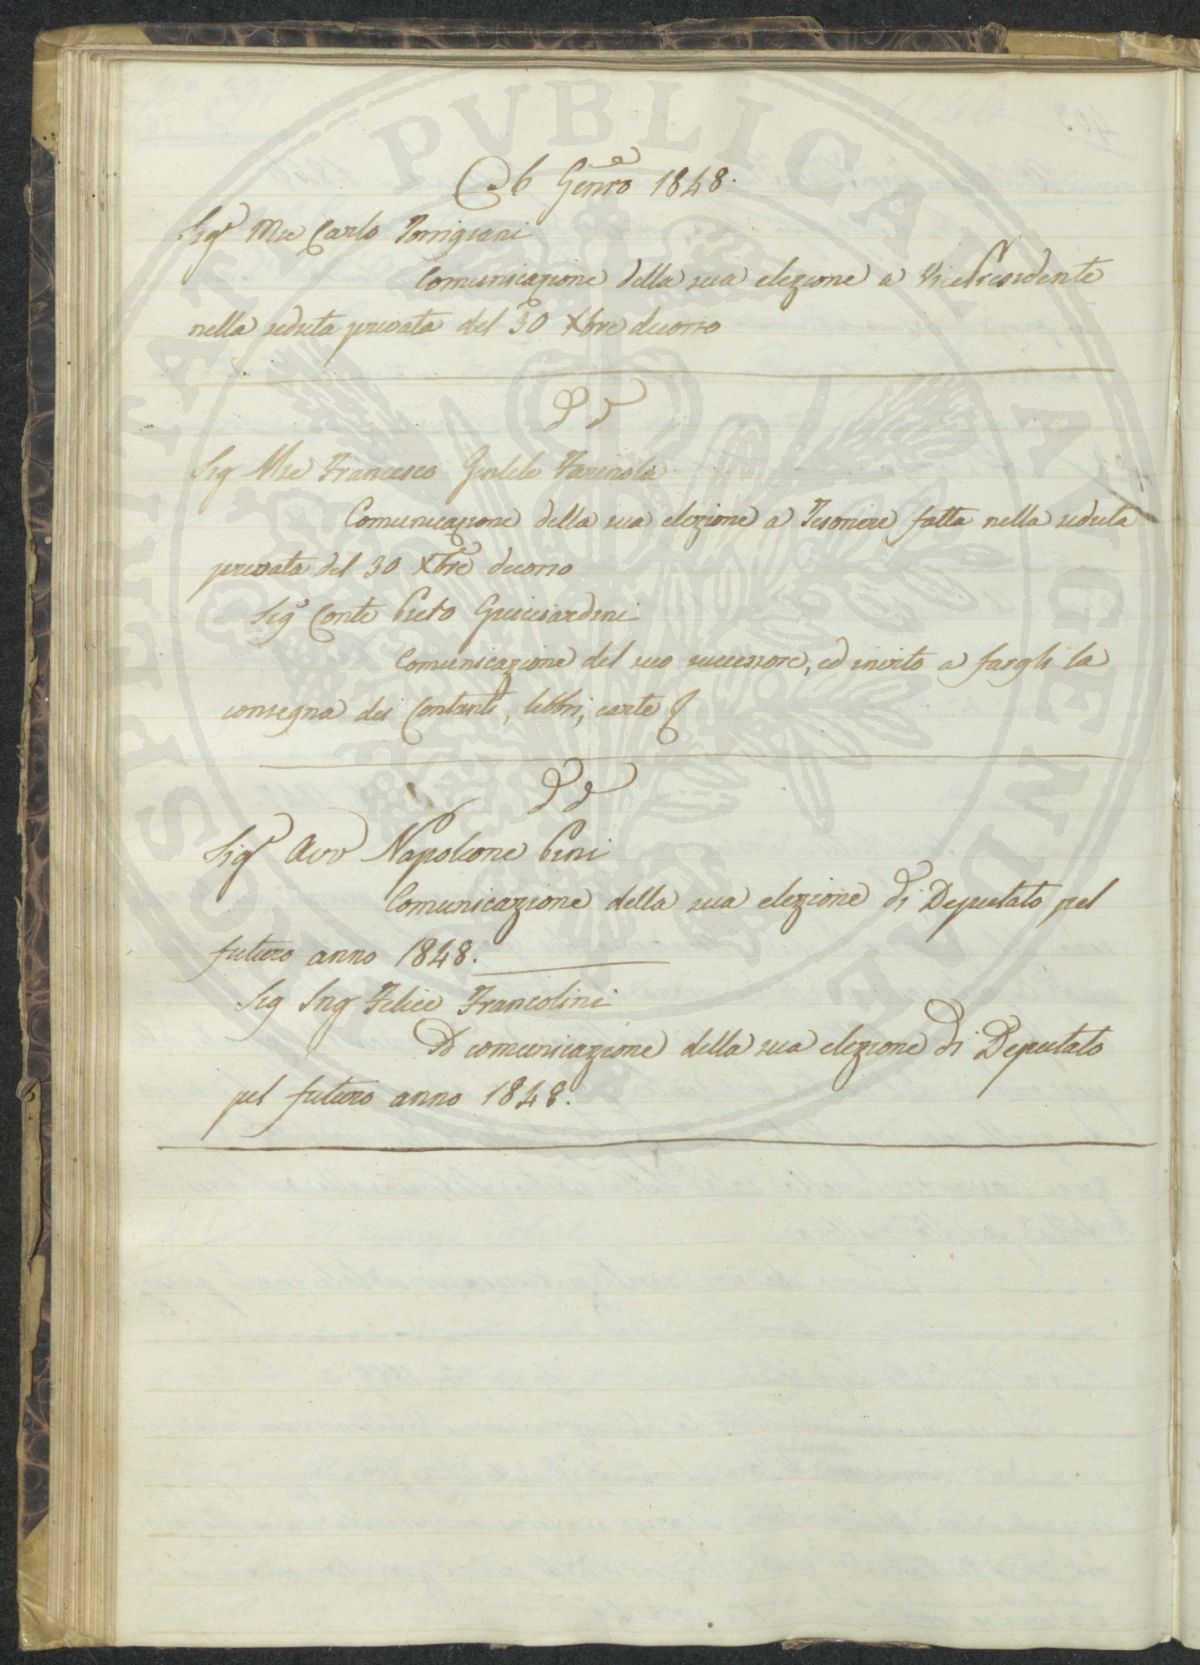 C. 6 Genro 1848.
Sigr Mse Carlo Torrigiani
Comunicazione della sua elezione a VicePresidente
nella seduta privata del 30 Xbre decorso
D D
Sig Mse Francesco Gentile Farinola
Comunicazione della sua elezione a Tesoriere fatta nella seduta
privata del 30 Xbre decorso
Sigr Conte Piero Guicciardini
Comunicazione del suo successore, ed invito a fargli la
consegna dei Contanti, libbri, carte
D D
Sigr Avv Napoleone Pini
Comunicazione della sua elezione di Deputato pel
futuro anno 1848.
Sig Ing Felice Francolini
Do comunicazione della sua elezione di Deputato
pel futuro anno 1848.